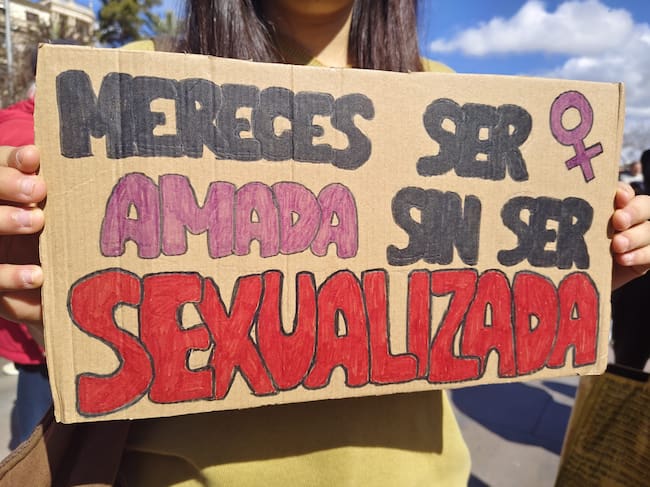 MERECES SER
AMADA SIN SER
SEXUALIZADA